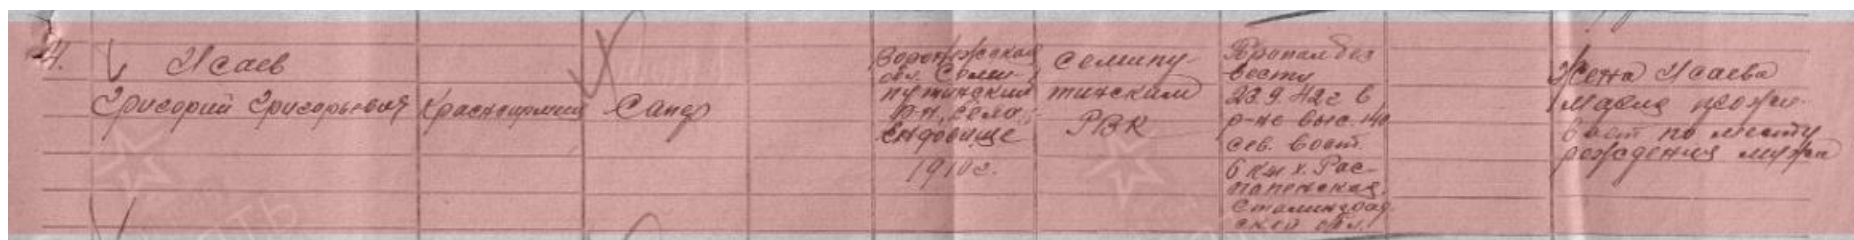 4.
Исаев
Григорий Григорьевич
Красноармеец
Сапер
Воронежская
обл. Семи-
лукский
р-н, село
Ендовище
1910 г.
Семилу-
РВК
Пропал без
вести
23.9.42 г в
р-не выс. 140
сев. вост.
6 км х. Рас-
попинская
Сталинград-
ской обл.
Жена Исаева
Мария прожи-
вает по месту
рождения мужа